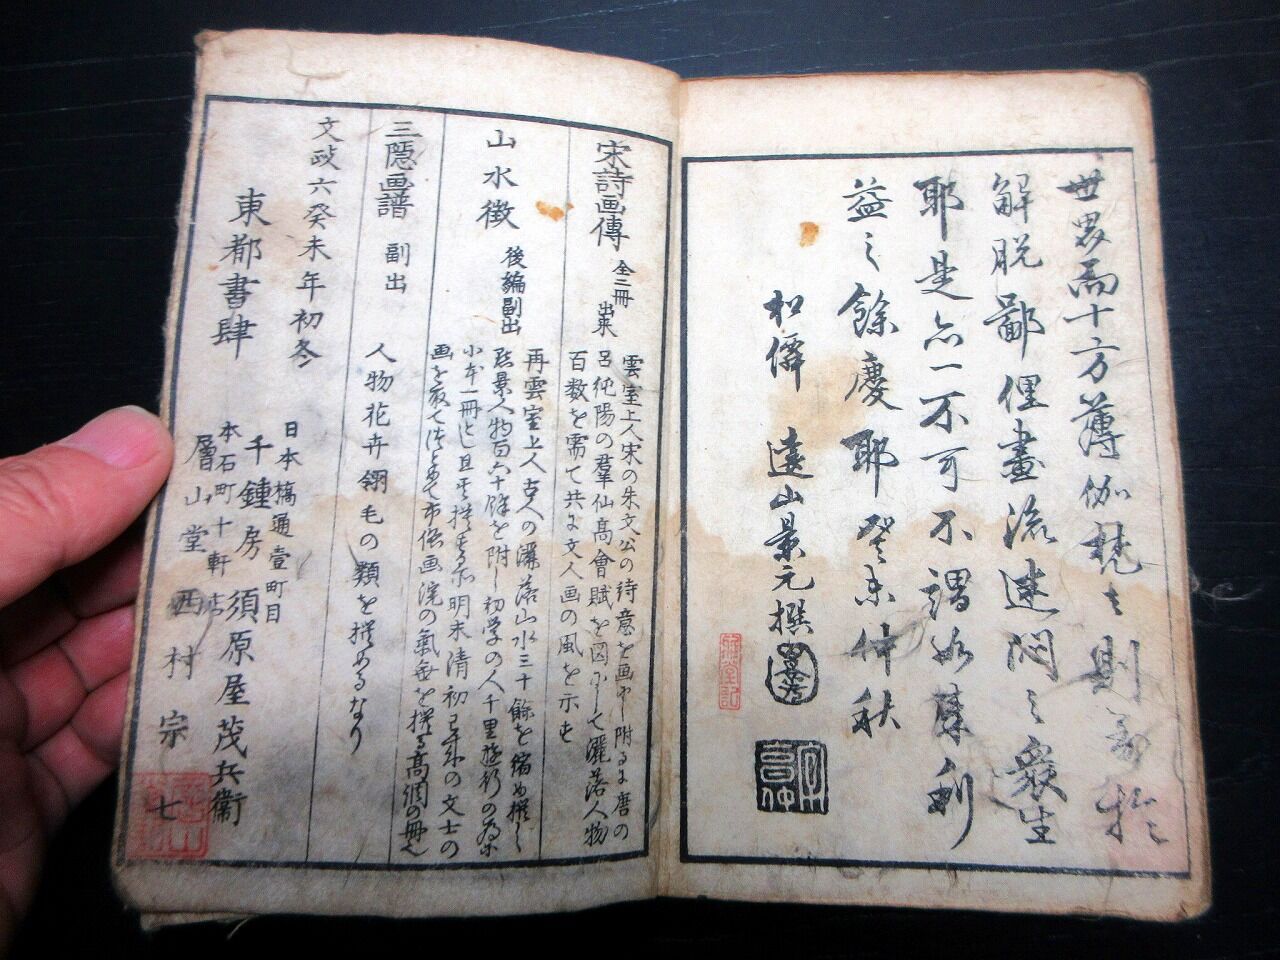 世界而十方薄伽梵之則
解脱鄙俚畫流達悶之衆生
耶是亦一不可不謂如来利
益之餘慶耶癸未仲秋
和儒 遠山景元撰
宋詩画傳 全三冊 出来
雲室上人宋の朱文公の待意を画中し附るに唐の
呂純陽の羣仙高會賦を図にして灑落人物
百数を需て共に文人画の風を示す
山水徴 後編副出
再雲室上人古人の灑落山水三十餘を縮め撰し
点景人物百六十餘を附し初学の人千里遊行の為に
小本一冊とし且
明末清初
の文士の
画を
て市俗画流の氣
を
高網の冊也
三隠画譜 副出
人物花卉翎毛の類を撰めるなり
文政六癸未年初冬
東都書肆
日本橋通壹町目
千鍾房 須原屋茂兵衞
本石町十軒店
層山堂 西村宗七